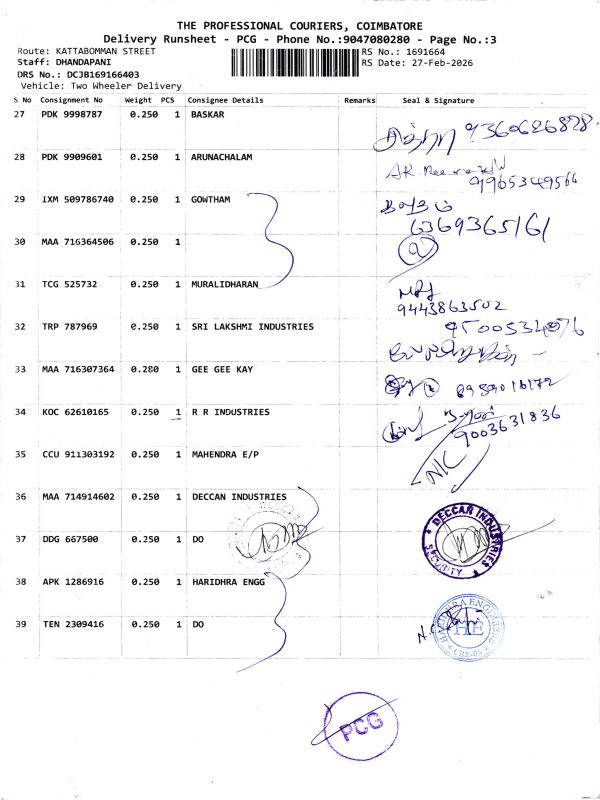 THE PROFESSIONAL COURIERS, COIMBATORE
Delivery Runsheet - PCG - Phone No.:9047080280 - Page No.:3
Route: KATTABOMMAN STREET RS No.: 1691664
Staff: DHANDAPANI RS Date: 27-Feb-2026
DRS No.: DCJB169166403
Vehicle: Two Wheeler Delivery
S No Consignment No Weight PCS Consignee Details Remarks Seal & Signature
27 PDK 9998787 0.250 1 BASKAR
9360626828
28 PDK 9909601 0.250 1 ARUNACHALAM
AR.
9965349566
29 IXM 509786740 0.250 1 GOWTHAM
6369365161
30 MAA 716364506 0.250 1
2
31 TCG 525732 0.250 1 MURALIDHARAN
9443863502
32 TRP 787969 0.250 1 SRI LAKSHMI INDUSTRIES
9500534076
33 MAA 716307364 0.280 1 GEE GEE KAY
34 KOC 62610165 0.250 1 R R INDUSTRIES
9003631836
35 CCU 911303192 0.250 1 MAHENDRA E/P
N/C
36 MAA 714914602 0.250 1 DECCAN INDUSTRIES
DECCAN INDUSTRIES
SECURITY
37 DDG 667500 0.250 1 DO
38 APK 1286916 0.250 1 HARIDHRA ENGG
39 TEN 2309416 0.250 1 DO
HARIDHRA ENGINEERS
HE
CBE-06
PCG